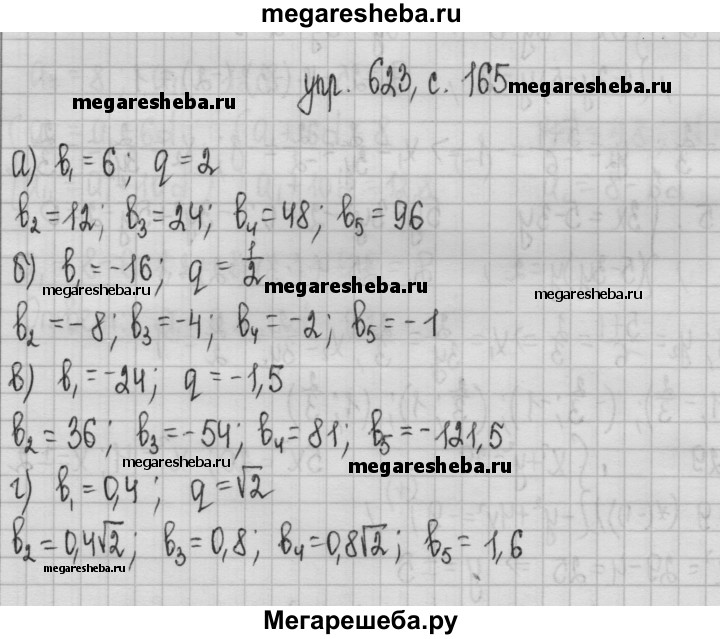 megaresheba.ru
упр. 623, с. 165
megaresheba.ru megaresheba.ru
а) b₁ = 6; q = 2
b₂ = 12; b₃ = 24; b₄ = 48; b₅ = 96
б) b₁ = -16; q = 1/2
megaresheba.ru megaresheba.ru megaresheba.ru
b₂ = -8; b₃ = -4; b₄ = -2; b₅ = -1
в) b₁ = -24; q = -1,5
b₂ = 36; b₃ = -54; b₄ = 81; b₅ = -121,5
megaresheba.ru megaresheba.ru
г) b₁ = 0,4; q = √2
b₂ = 0,4√2; b₃ = 0,8; b₄ = 0,8√2; b₅ = 1,6
megaresheba.ru
Мегарешеба.ру